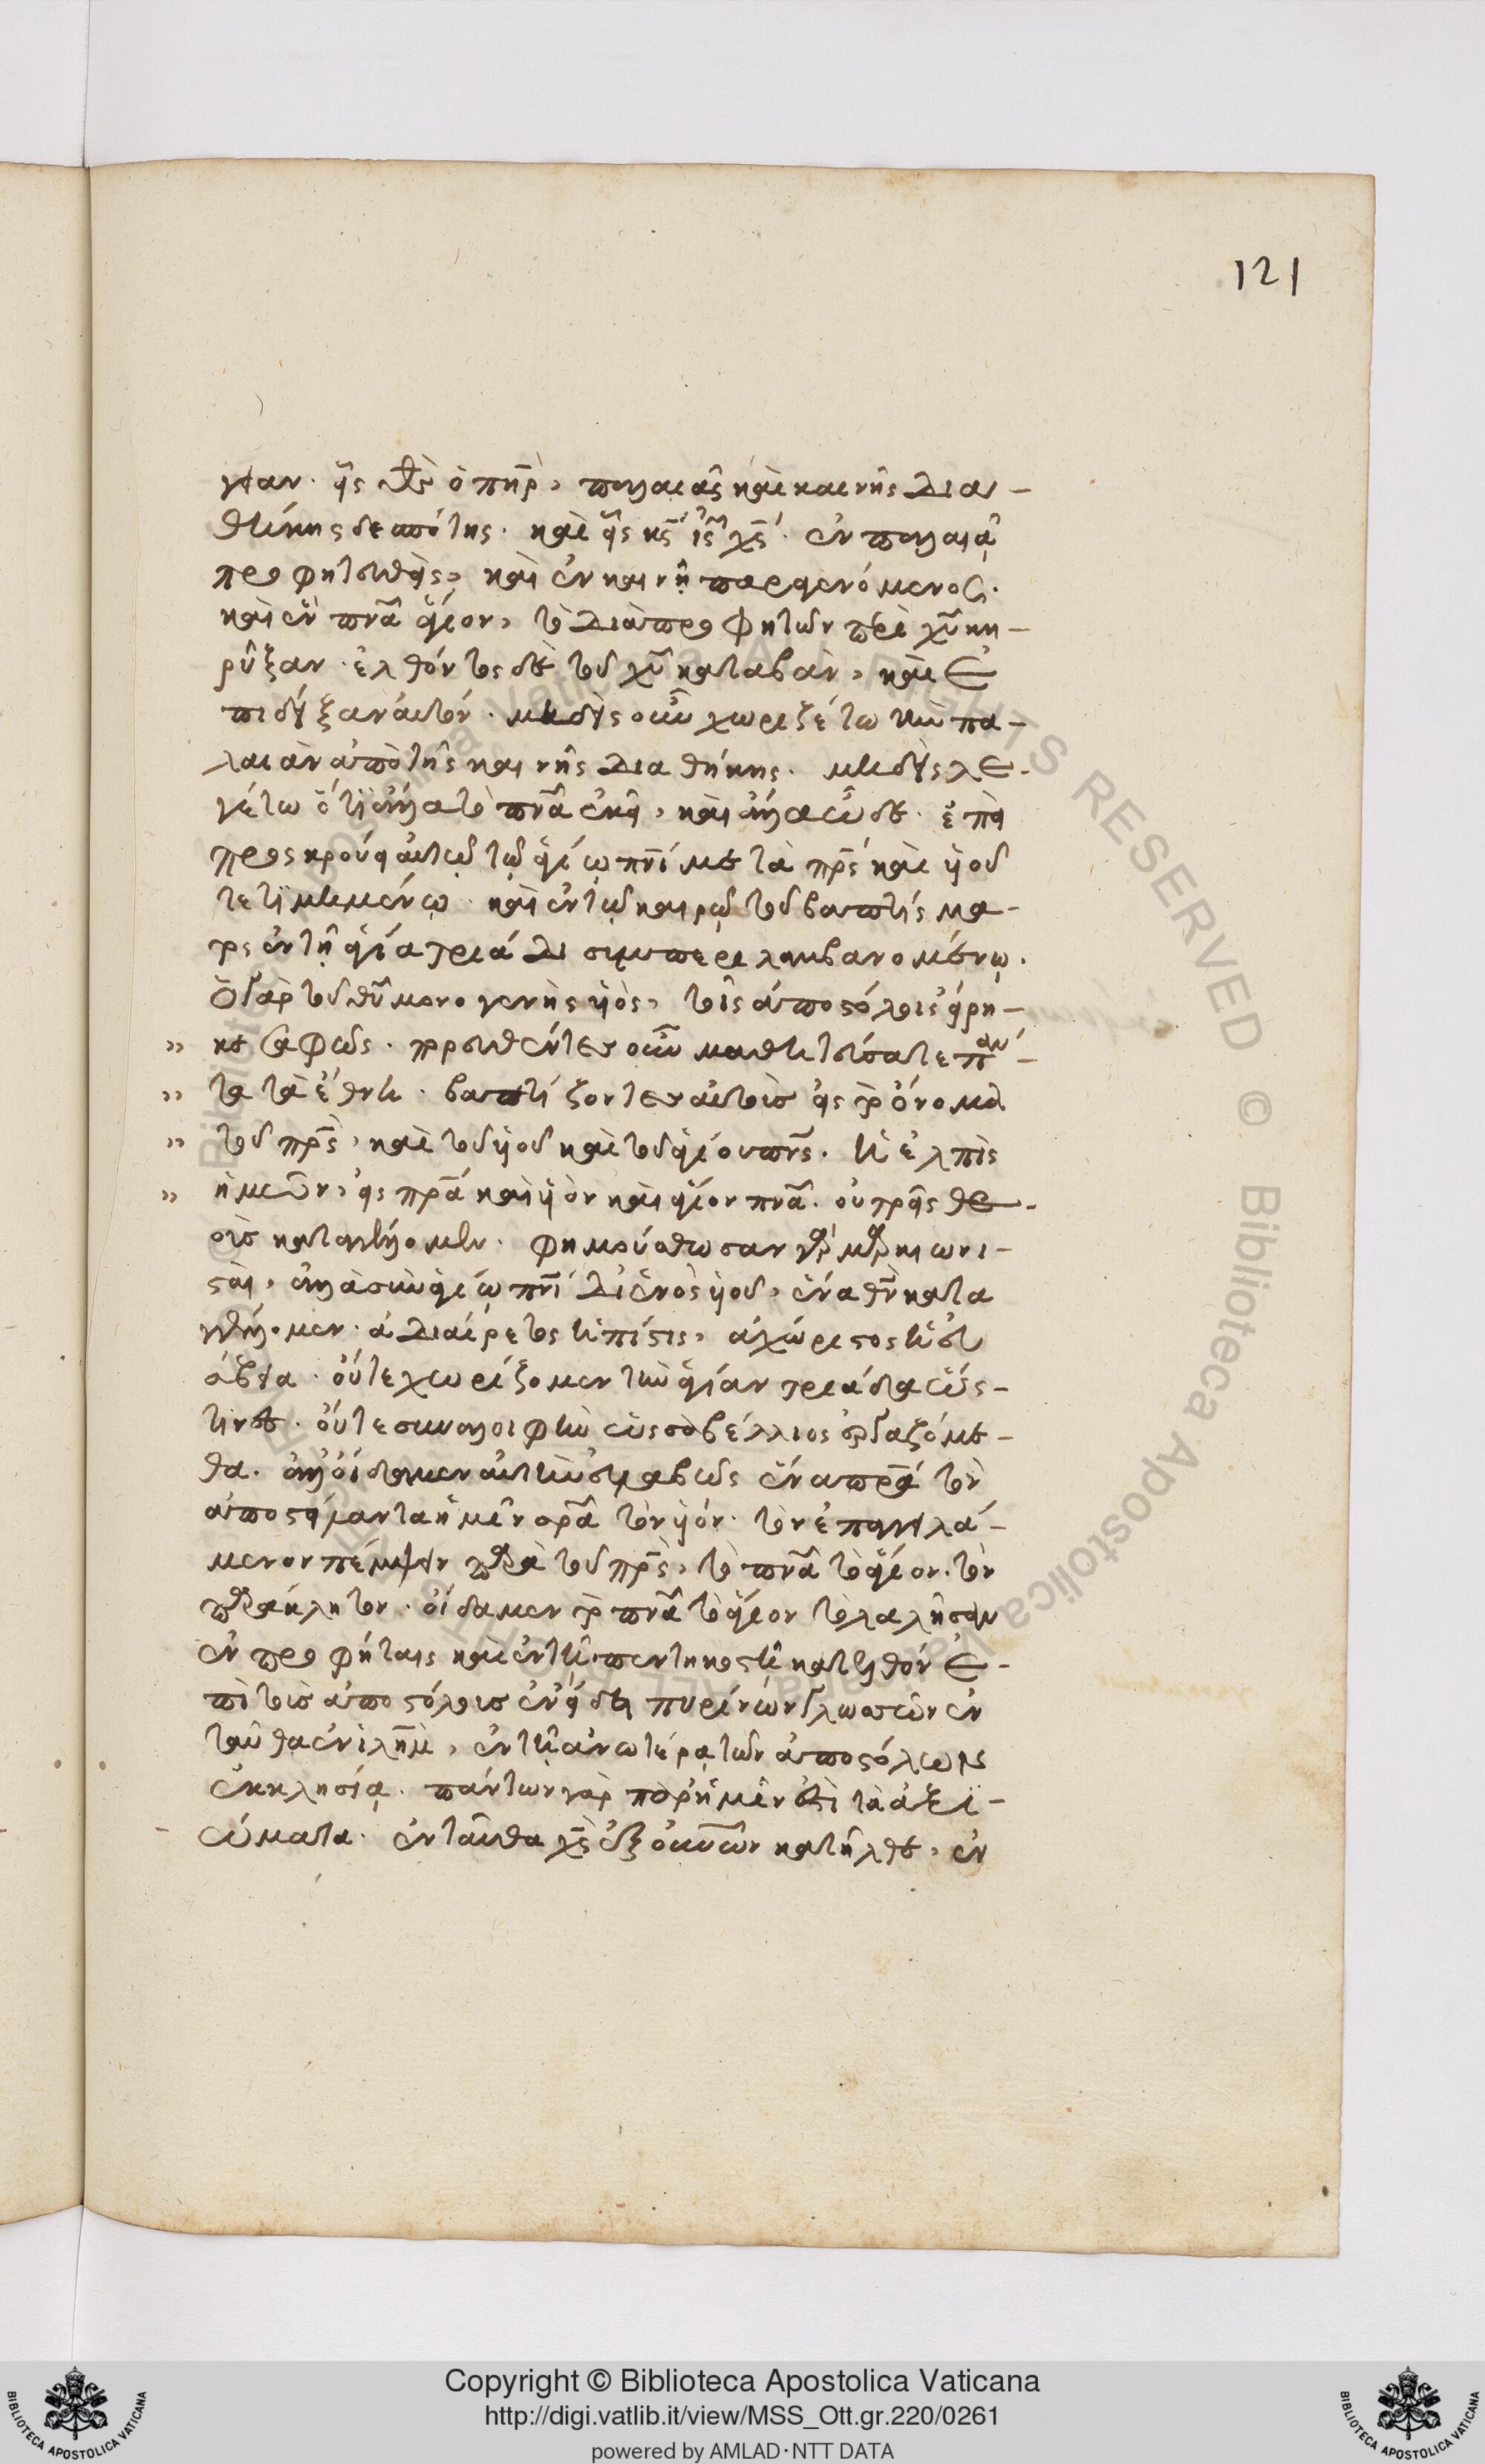 121
γειαν. εἷς θς ὁ πηρ, παλαιᾶς καὶ καινῆς δια-
θήκης δεσπότης. καὶ εἷς κς ις χς. ἐν παλαιᾷ
προφητευθεὶς, καὶ ἐν καινῇ παραγενόμενος.
καὶ ἓν πνα ἅγιον, τὸ διὰ προφητῶν περὶ χυ κη-
ρῦξαν. ἐλθόντος δὲ τοῦ χυ καταβὰν, καὶ ἐ
πιδεῖξαν αὐτόν. μηδεὶς οὖν χωριζέτω τὴν πα-
λαιὰν ἀπὸ τῆς καινῆς διαθήκης. μηδεὶς λε-
γέτω ὅτι ἄλλα τὸ πνα ἐκεῖ, καὶ ἄλλα ὧδε. ἐπεὶ
προσκρούει αὐτῷ τῷ ἁγίῳ πνι μετὰ πρς καὶ υἱοῦ
τετιμημένῳ. καὶ ἐν τῷ καιρῷ τοῦ βαπτίσμα-
τος ἐν τῇ ἁγία τριάδι συμπεριλαμβανομένῳ.
ὁ γὰρ τοῦ θυ μονογενὴς υἱὸς, τοῖς ἀποστόλοις εἴρη-
κε σαφῶς. πορευθέντες οὖν μαθητεύσατε πάν-
τα τὰ ἔθνη. βαπτίζοντες αὐτοὺς εἰς τὸ ὄνομα
τοῦ πρς, καὶ τοῦ υἱοῦ καὶ τοῦ ἁγίου πνς. ἡ ἐλπὶς
ἡμῶν, εἰς πρα καὶ υἱὸν καὶ ἅγιον πνα. οὐ τρεῖς θε-
οὺς καταγγέλλομεν. φιμούσθωσαν γὰρ μαρκιωνι-
σταὶ, ἀλλὰ σὺν ἁγίῳ πνι δι' ἑνὸς υἱοῦ, ἕνα θν κατα
γγέλλομεν. ἀδιαίρετος ἡ πίστις, ἀχώριστος ἡ εὐ
σέβεια. οὔτε χωρίζομεν τὴν ἁγίαν τριάδα ὥς-
τινες. οὔτε συναλοιφὴν ὡς σαβέλλιος ἐργαζόμε-
θα. ἀλλ' οἴδαμεν αὐτὴν εὐσεβῶς ἕνα πρα τὸν
ἀποστείλαντα ἡμῖν σρα τὸν υἱόν. τὸν ἐπαγγειλά-
μενον πέμψειν παρὰ τοῦ πρς, τὸ πνα τὸ ἅγιον. τὸν
παράκλητον. οἴδαμεν τὸ πνα τὸ ἅγιον τὸ λαλῆσαν
ἐν προφήταις καὶ ἐν τῇ πεντηκοστῇ κατελθὸν ἐ-
πὶ τοὺς ἀποστόλους ἐν εἴδει πυρίνων γλωσσῶν ἐν
ταῦθα ἐν ιλημ, ἐν τῇ ἀνωτέρᾳ τῶν ἀποστόλων
ἐκκλησίᾳ. πάντων γὰρ παρ' ἡμῖν ἐστὶ τὰ ἀξι-
ώματα. ἐνταῦθα χς ἐξ οὐνῶν κατῆλθε, ἐν
Copyright © Biblioteca Apostolica Vaticana
http://digi.vatlib.it/view/MSS_Ott.gr.220/0261
powered by AMLAD·NTT DATA